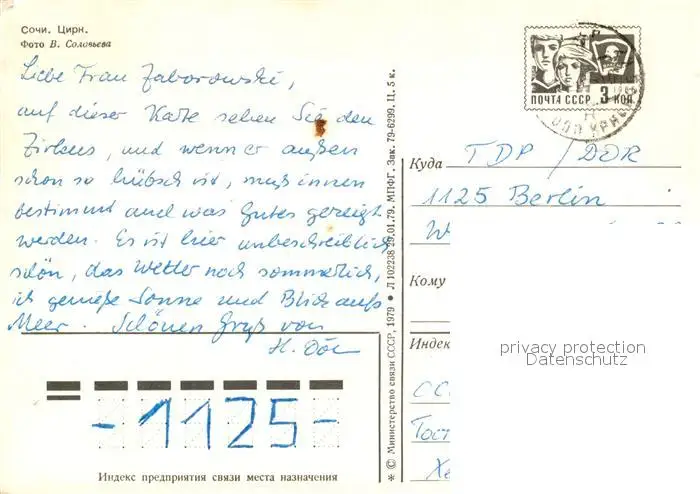 Сочи. Цирк.
Фото В. Соловьева
Liebe Frau Zaborowski,
auf dieser Karte sehen Sie den
Zirkus, und wenn er außen
schon so hübsch ist, muß innen
bestimmt auch was Gutes gezeigt
werden. Es ist hier unbeschreiblich
schön, das Wetter noch sommerlich,
ich genieße Sonne und Blick aufs
Meer. Schönen Gruß von
H.
-1125-
Индекс предприятия связи места назначения
* © Министерство связи СССР, 1979 ● Л 102238 29.01.79. МПФГ. Зак. 79-6299. Ц. 5 к.
ПОЧТА СССР 3 КОП
Куда TDP / DDR
1125 Berlin
W
Кому
Индек
privacy protection
Datenschutz
СС
Гост